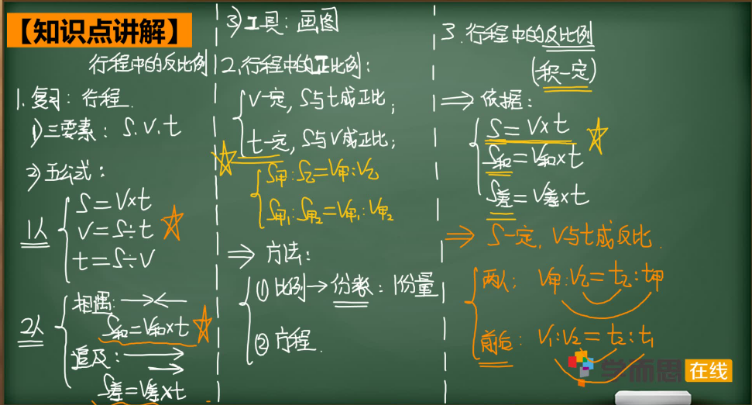 【知识点讲解】
行程中的反比例
1.复习：行程
1)三要素：S.V.t
2)五公式：
1人
S=V×t
V=S÷t
t=S÷V
2人
相遇：
S和=V和×t
追及：
S差=V差×t
3)工具：画图
2.行程中的正比例：
V一定,S与t成正比；
t一定,S与V成正比；
S甲:S乙=V甲:V乙
S甲1:S甲2=V甲1:V甲2
⇒方法：
①比例→份数：1份量
②方程
3.行程中的反比例
(积一定)
⇒依据：
S=V×t
S和=V和×t
S差=V差×t
⇒S一定,V与t成反比
两人：V甲:V乙=t乙:t甲
前后：V1:V2=t2:t1
学而思 在线